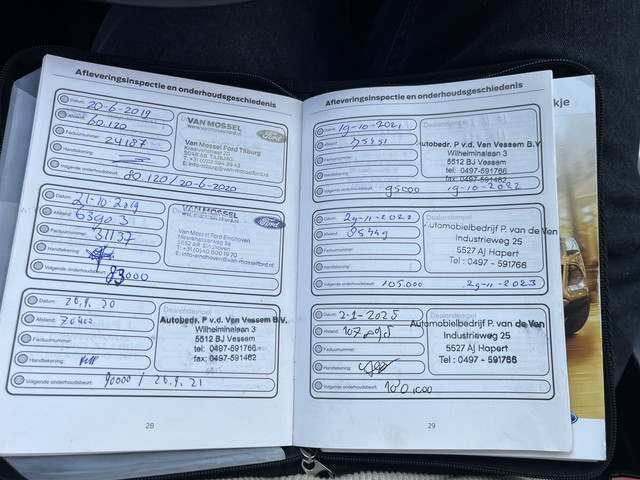 Afleveringsinspectie en onderhoudsgeschiedenis
Datum: 20-6-2019
Afstand: 60.120
Factuurnummer: 24187
Handtekening:
Volgende onderhoudsbeurt: 80.120 / 20-6-2020
VAN MOSSEL
Ford
Van Mossel Ford Tilburg
Kraaivenstraat 20
5048 AB TILBURG
Datum: 21-10-2019
Afstand: 63903
Factuurnummer: 31137
Handtekening:
Volgende onderhoudsbeurt: 83000
VAN MOSSEL
Ford
Van Mossel Ford Eindhoven
5652 AB Eindhoven
T: +31 (0)40 800 19 70
Datum: 26.9.20
Afstand:
Factuurnummer:
Handtekening:
Volgende onderhoudsbeurt: 90000 / 26.9.21
Dealerstempel
Autobedr. P v.d. Van Vessem B.V.
Wilhelminalaan 3
5512 BJ Vessem
tel: 0497-591766
fax: 0497-591462
28
Afleveringsinspectie en onderhoudsgeschiedenis
Datum: 19-10-2021
Afstand:
Factuurnummer:
Handtekening:
Volgende onderhoudsbeurt: 95000 19-10-2022
Autobedr. P v.d. Van Vessem B.V.
Wilhelminalaan 3
5512 BJ Vessem
tel: 0497-591766
fax: 0497-591462
Datum: 29-11-2022
Afstand: 85449
Factuurnummer:
Handtekening:
Volgende onderhoudsbeurt: 105.000 29-11-2023
Dealerstempel
Automobielbedrijf P. van de Ven
Industrieweg 25
5527 AJ Hapert
Tel : 0497 - 591766
Datum: 2-1-2025
Afstand: 107295
Factuurnummer:
Handtekening:
Volgende onderhoudsbeurt:
Dealerstempel
Automobielbedrijf P. van de Ven
Industrieweg 25
5527 AJ Hapert
Tel : 0497 - 591766
29
kje